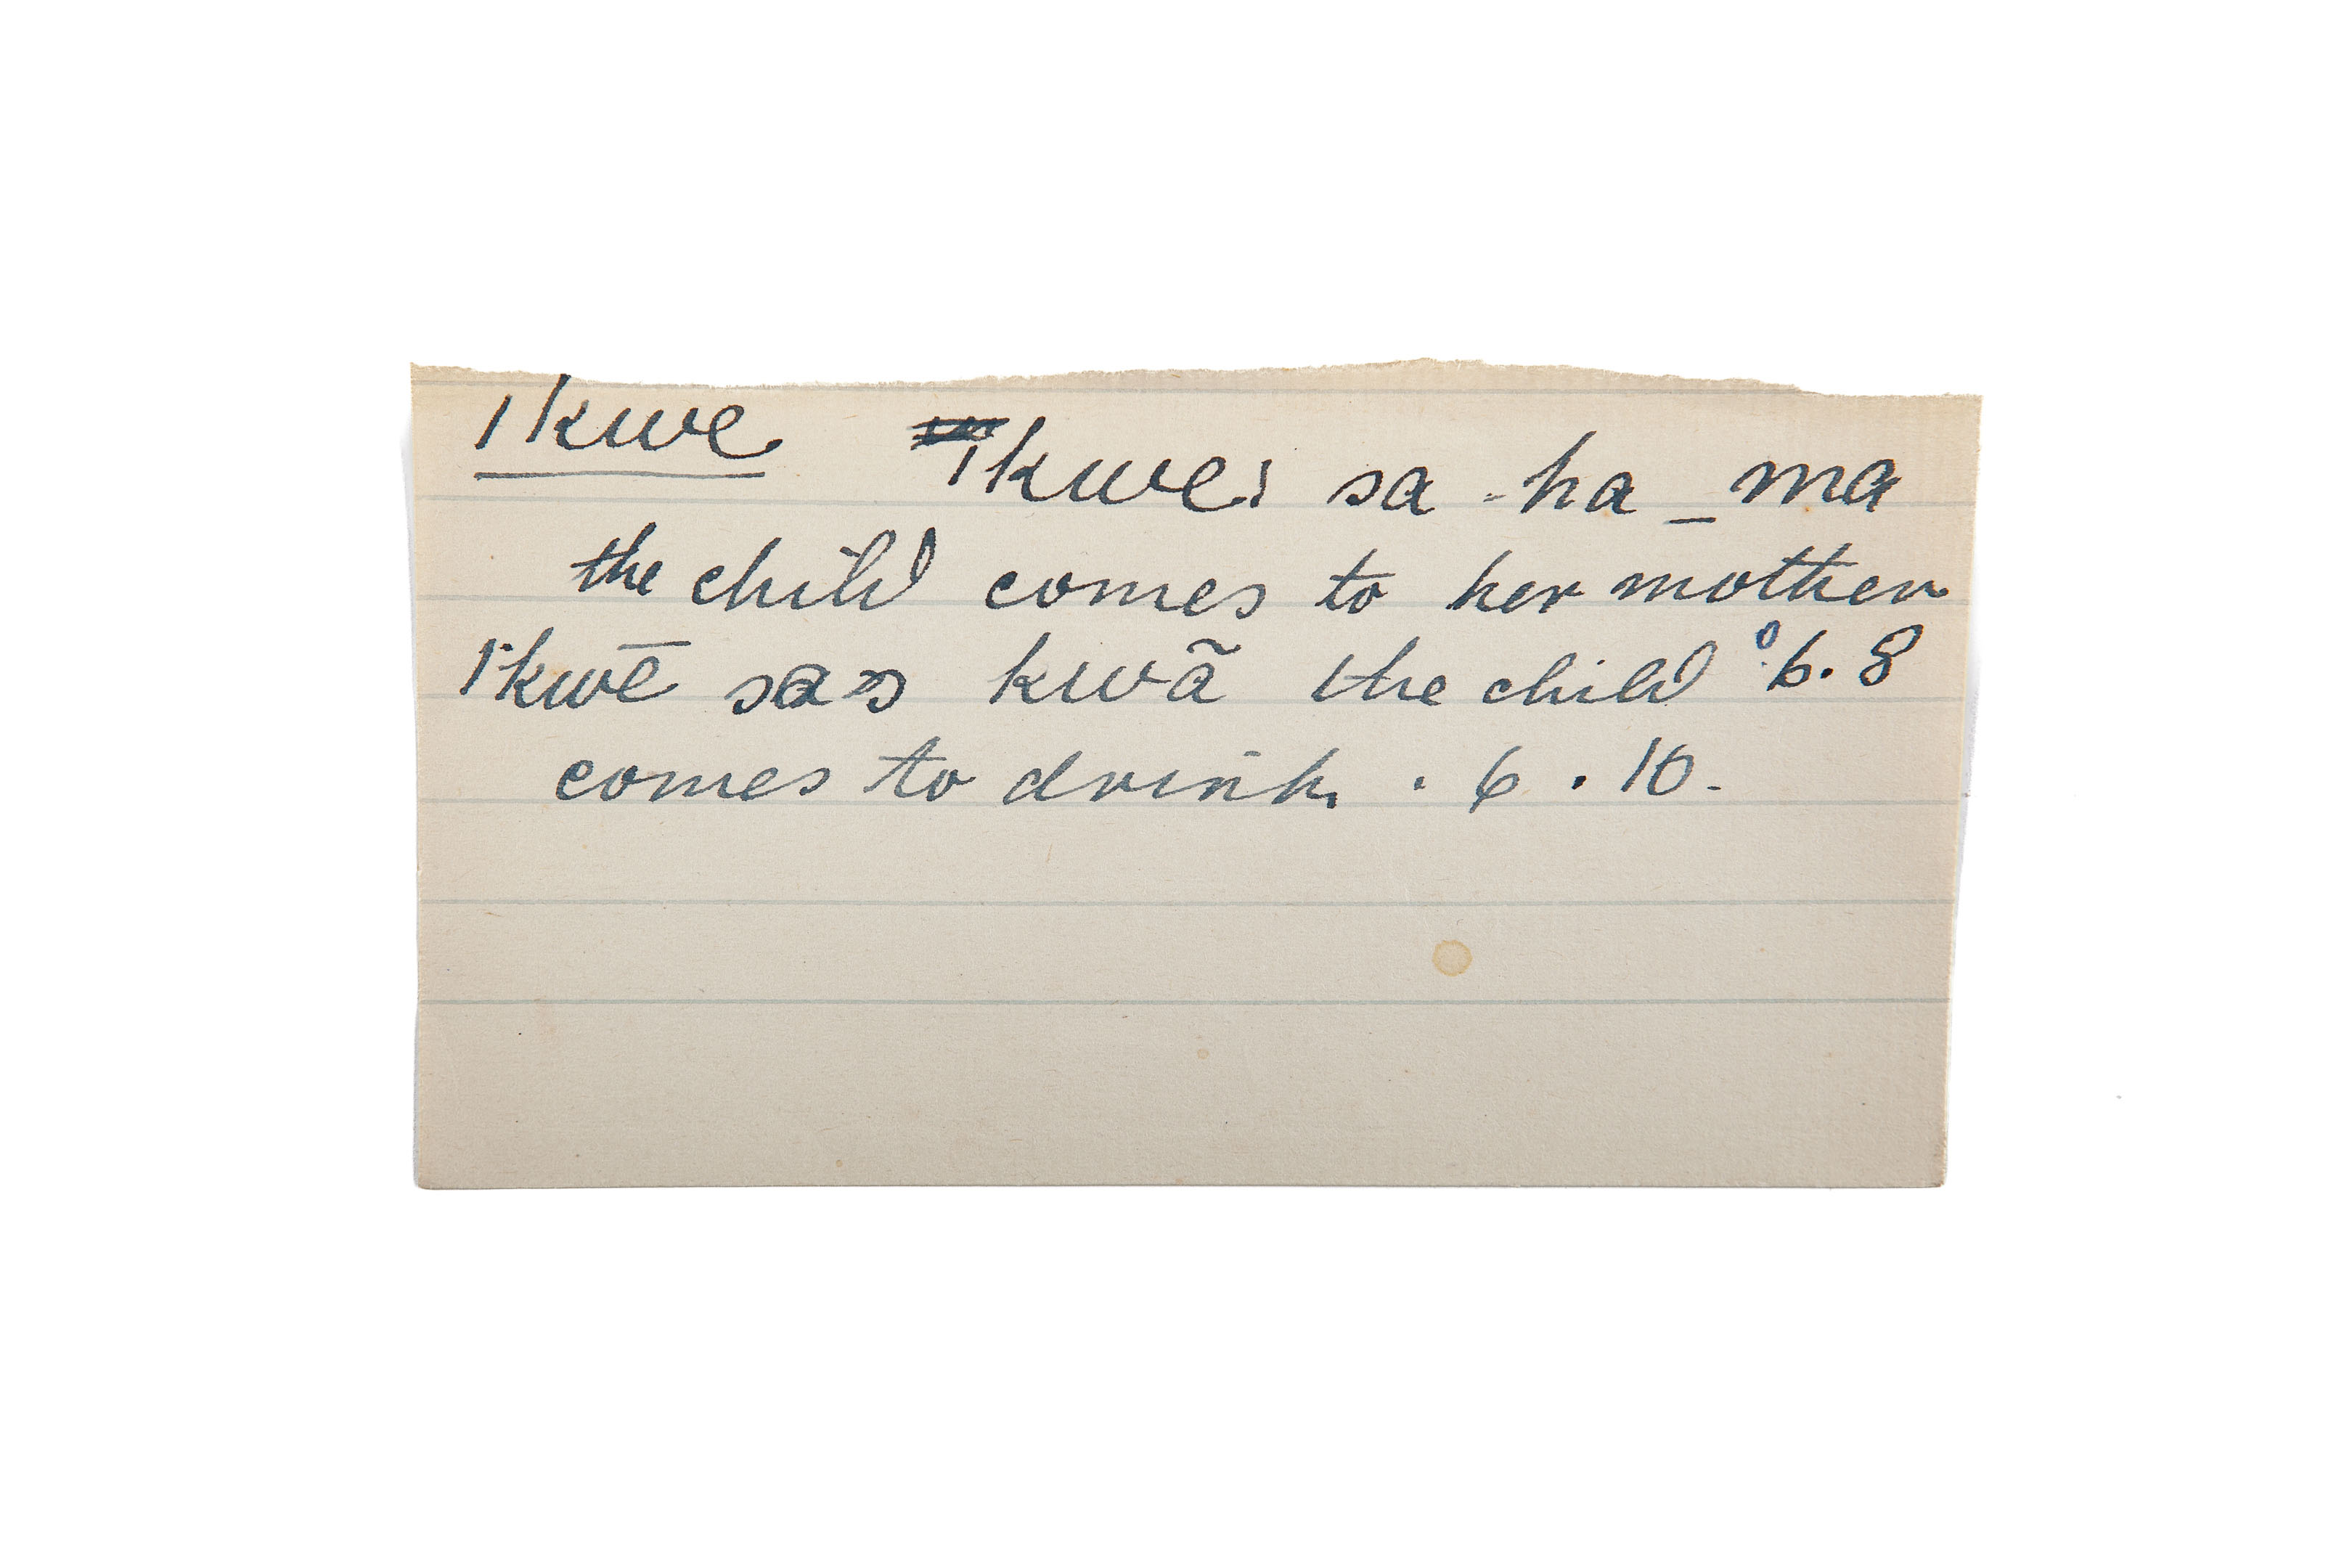 ǀkwe ǀkwe: sa - ha _ ma
the child comes to her mother
ǀkwē sa kwã the child 6.8
comes to drink. 6.10.